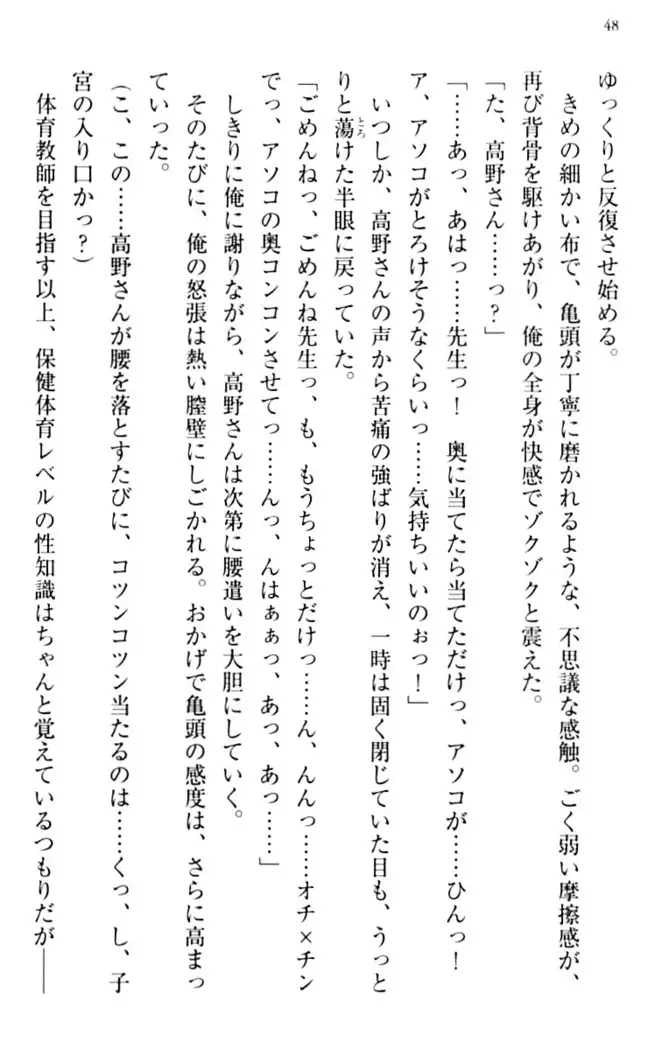 48
ゆっくりと反復させ始める。
きめの細かい布で、亀頭が丁寧に磨かれるような、不思議な感触。ごく弱い摩擦感が、
再び背骨を駆けあがり、俺の全身が快感でゾクゾクと震えた。
「た、高野さん……っ?」
「……あっ、あはっ……先生っ! 奥に当てたら当てただけっ、アソコが……ひんっ!
ア、アソコがとろけそうなくらいっ……気持ちいいのぉっ!」
いつしか、高野さんの声から苦痛の強ばりが消え、一時は固く閉じていた目も、うっと
りと蕩けた半眼に戻っていた。
とろ
「ごめんねっ、ごめんね先生っ、も、もうちょっとだけっ……ん、んんっ……オチ×チン
でっ、アソコの奥コンコンさせてっ……んっ、んはぁぁっ、あっ、あっ……」
しきりに俺に謝りながら、高野さんは次第に腰遣いを大胆にしていく。
そのたびに、俺の怒張は熱い膣壁にしごかれる。おかげで亀頭の感度は、さらに高まっ
ていった。
(こ、この……高野さんが腰を落とすたびに、コツンコツン当たるのは……くっ、し、子
宮の入り口かっ?)
体育教師を目指す以上、保健体育レベルの性知識はちゃんと覚えているつもりだが――